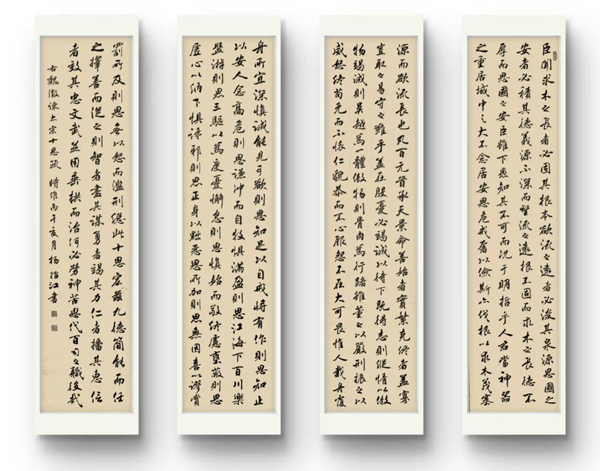 臣聞求木之長者必固其根本欲流之遠者必浚其泉源思國之
安者必積其德義源不深而望流之遠根不固而求木之長德不
厚而思國之安臣雖下愚知其不可而況于明哲乎人君當神器
之重居域中之大不念居安思危戒奢以儉斯亦伐根以求木茂塞
源而欲流長也凡百元首承天景命善始者實繁克終者蓋寡
豈取之易守之難乎蓋在殷憂必竭誠以待下既得志則縱情以傲
物竭誠則吳越為一體傲物則骨肉為行路雖董之以嚴刑振之以
威怒終苟免而不懷仁貌恭而不心服怨不在大可畏惟人載舟覆
舟所宜深慎誠能見可欲則思知足以自戒將有作則思知止
以安人念高危則思謙沖而自牧懼滿盈則思江海下百川樂
盤游則思三驅以為度憂懈怠則思慎始而敬終慮壅蔽則思
虛心以納下懼讒邪則思正身以黜惡恩所加則思無因喜以謬賞
罰所及則思無以怒而濫刑總此十思宏茲九德簡能而任
之擇善而從之則智者盡其謀勇者竭其力仁者播其惠信
者效其忠文武並用垂拱而治何必勞神苦思代百司之職役哉
右魏徵諫太宗十思疏 丙午亥月 楊 江書